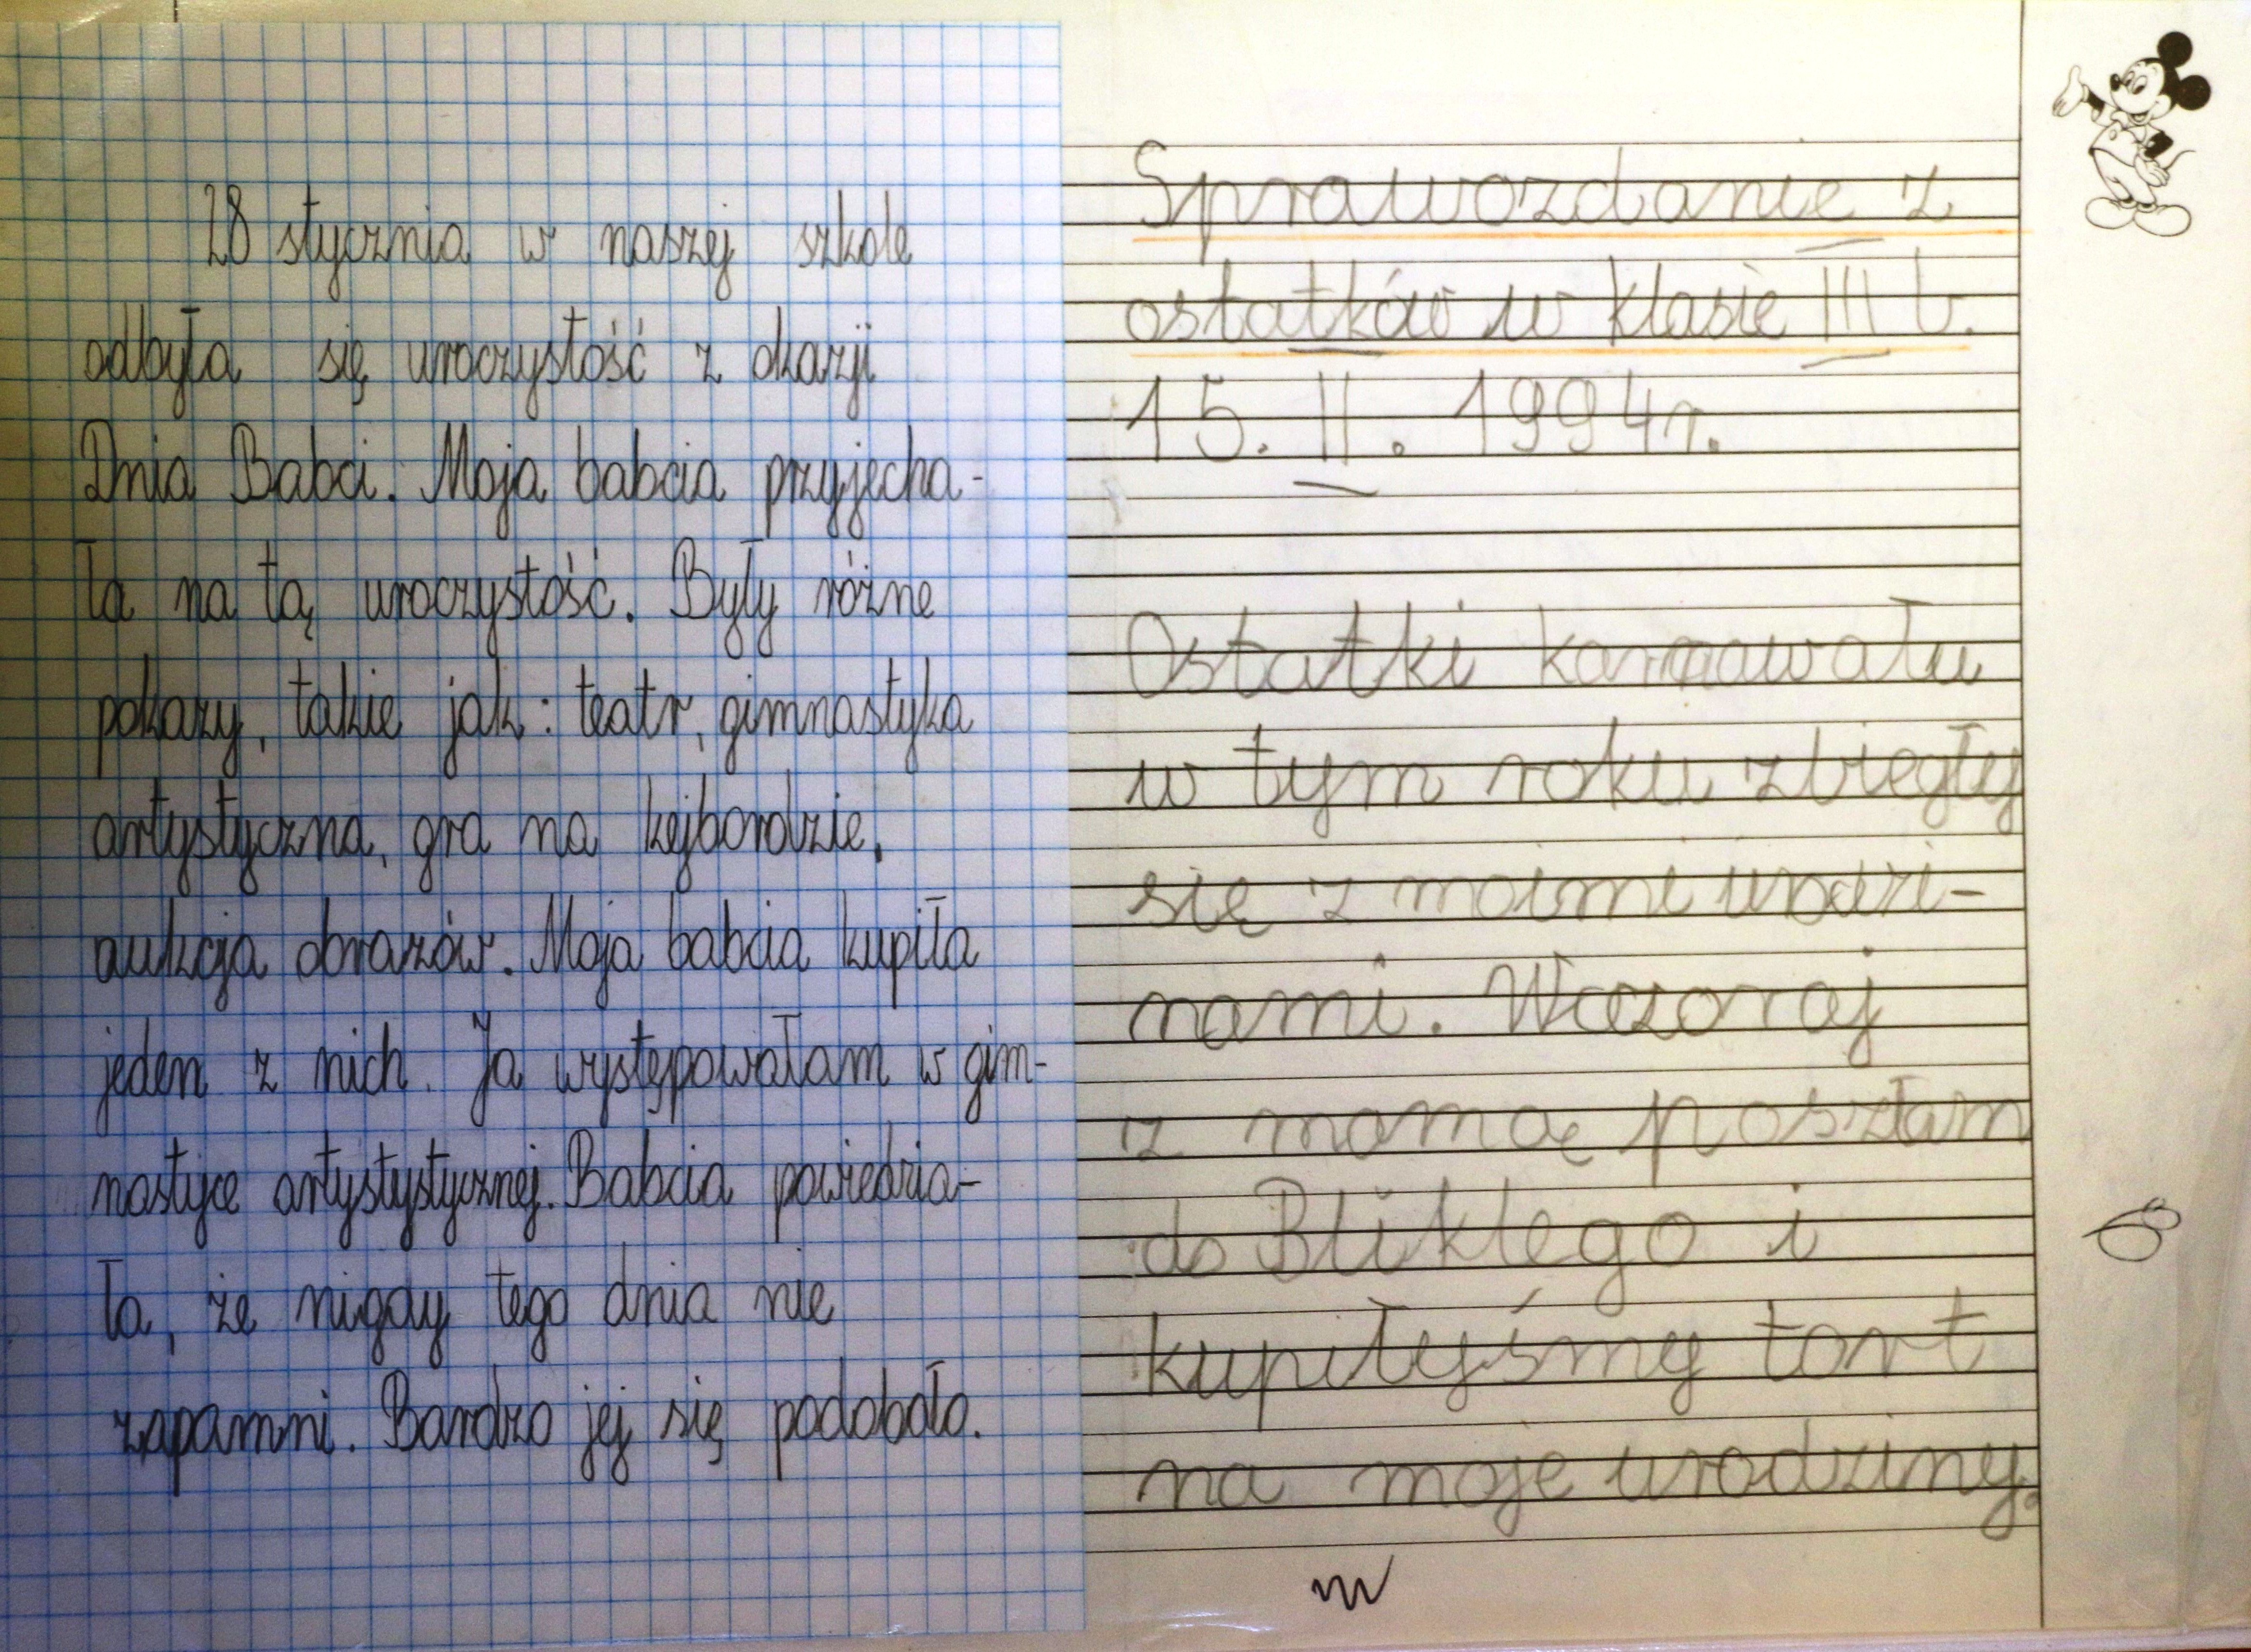 28 stycznia w naszej szkole
odbyła się uroczystość z okazji
Dnia Babci. Moja babcia przyjecha-
ła na tą uroczystość. Były różne
pokazy, takie jak: teatr, gimnastyka
artystyczna, gra na kejbordzie,
aukcja obrazów. Moja babcia kupiła
jeden z nich. Ja występowałam w gim-
nastyce artystystycznej. Babcia powiedzia-
ła, że nigdy tego dnia nie
zapamni. Bardzo jej się podobało.
Sprawozdanie z
ostatków w klasie III b.
15. II. 1994r.
Ostatki karnawału
w tym roku zbiegły
się z moimi urodzi-
nami. Wczoraj
z mamą poszłam
do Bliklego i
kupiłyśmy tort
na moje urodziny.